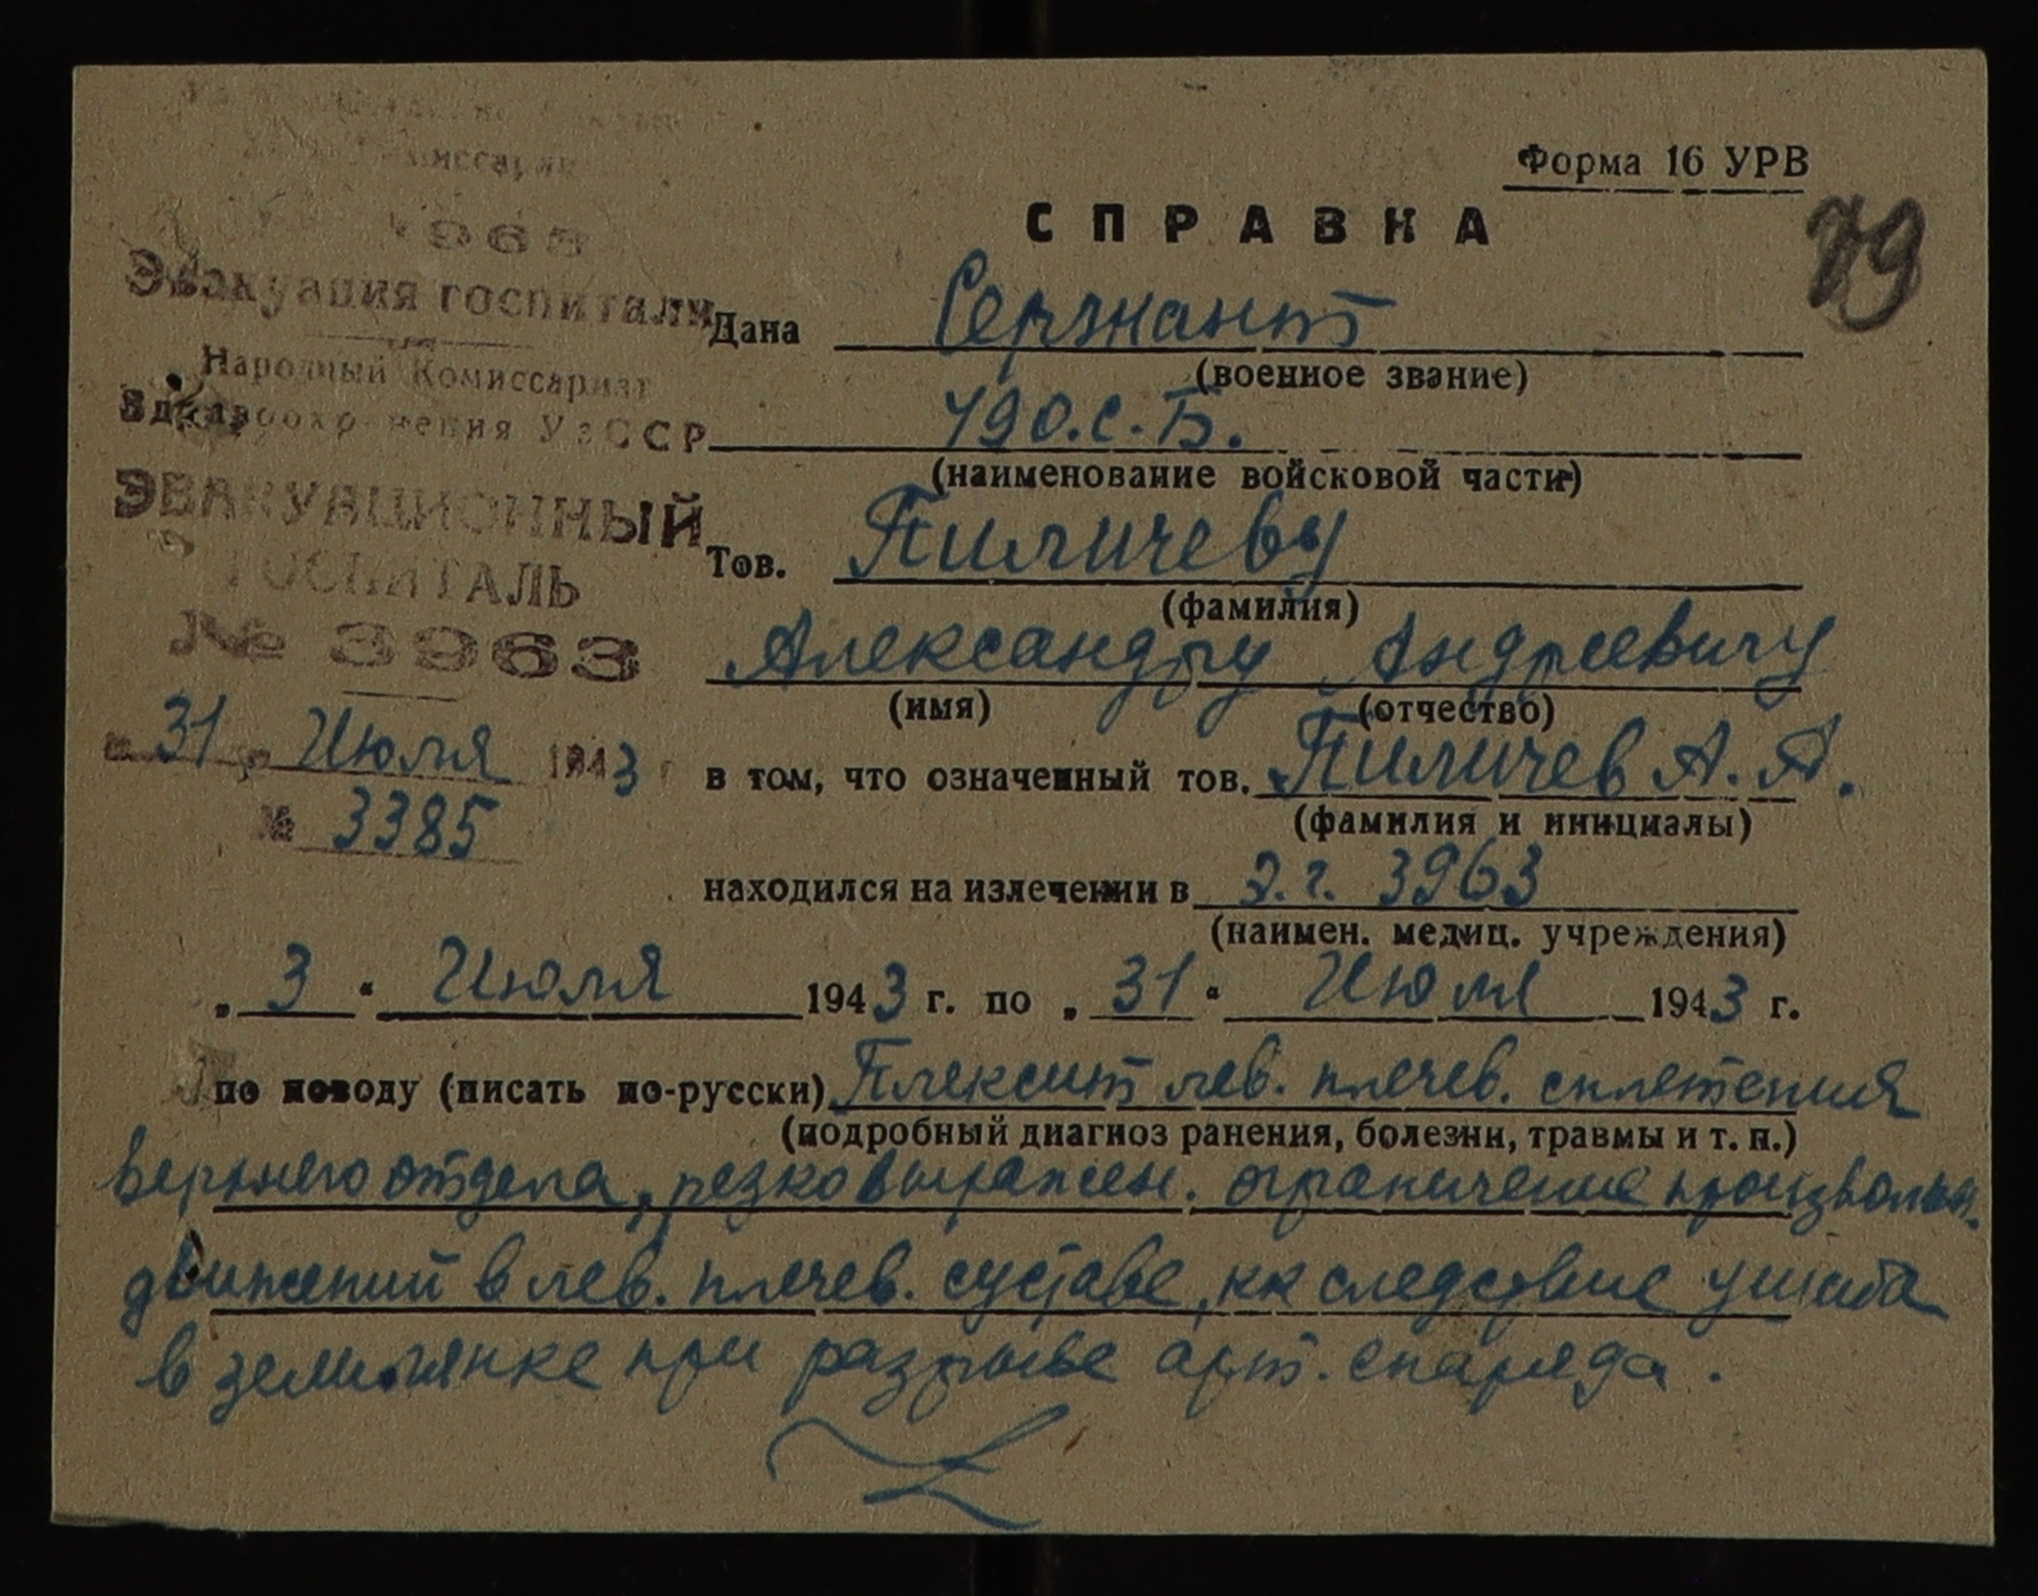 Форма 16 УРВ
79
СПРАВКА
3963
Эвакуация госпитали
Народный Комиссариат
Здравоохранения УзССР
ЭВАКУАЦИОННЫЙ
ГОСПИТАЛЬ
№ 3963
31 Июля 1943 г
№ 3385
Дана Сержант
(военное звание)
790.с.Б.
(наименование войсковой части)
Тов. Пиличеву
(фамилия)
Александру Андреевичу
(имя) (отчество)
в том, что означенный тов. Пиличев А. А.
(фамилия и инициалы)
находился на излечении в Э.г. 3963
(наимен. медиц. учреждения)
„3“ Июля 1943 г. по „31“ Июля 1943 г.
по поводу (писать по-русски) Плексит лев. плечев. сплетения
(подробный диагноз ранения, болезни, травмы и т. п.)
верхнего отдела, резко выражен. ограничение произвольн.
движений в лев. плечев. суставе, кк следствие ушиба
в землянке при разрыве арт. снаряда.